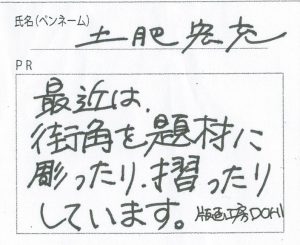 氏名(ペンネーム)
土肥宏充
PR
最近は、
街角を題材に
彫ったり、摺ったり
しています。版画工房DOHI